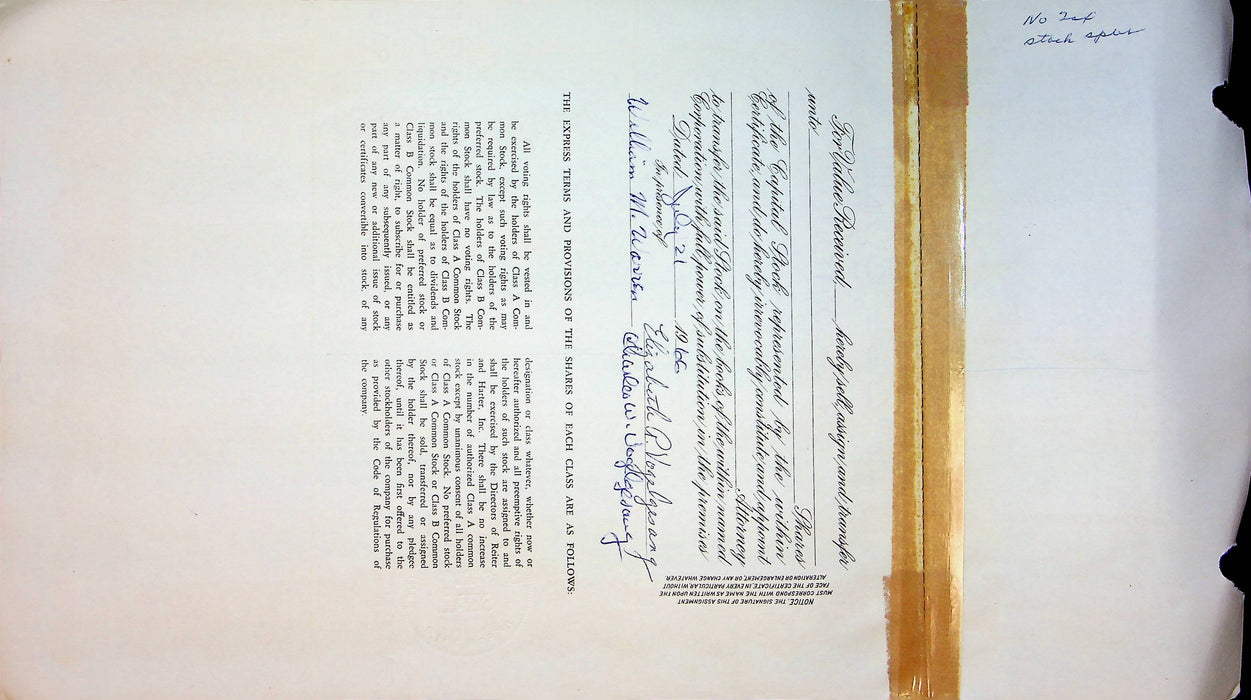 No Tax
stock split
For Value Received, hereby sell, assign, and transfer
unto
Shares
of the Capital Stock represented by the within
Certificate, and do hereby irrevocably constitute and appoint
Attorney
to transfer the said Stock on the books of the within named
Corporation with full power of substitution in the premises
Dated July 21 1966
In presence of
Elizabeth R. Voegelgesang
William M. Warren Charles W. Voegelgesang
NOTICE. THE SIGNATURE OF THIS ASSIGNMENT
MUST CORRESPOND WITH THE NAME AS WRITTEN UPON THE
FACE OF THE CERTIFICATE, IN EVERY PARTICULAR WITHOUT
ALTERATION OR ENLARGEMENT, OR ANY CHANGE WHATEVER.
THE EXPRESS TERMS AND PROVISIONS OF THE SHARES OF EACH CLASS ARE AS FOLLOWS:
All voting rights shall be vested in and
be exercised by the holders of Class A Com-
mon Stock, except such voting rights as may
be required by law as to the holders of the
preferred stock. The holders of Class B Com-
mon Stock shall have no voting rights. The
rights of the holders of Class A Common Stock
and the rights of the holders of Class B Com-
mon stock shall be equal as to dividends and
liquidation. No holder of preferred stock or
Class B Common Stock shall be entitled as
a matter of right, to subscribe for or purchase
any part of any subsequently issued, or any
part of any new or additional issue of stock
or certificates convertible into stock of any
designation or class whatever, whether now or
hereafter authorized and all preemptive rights of
the holders of such stock are assigned to and
shall be exercised by the Directors of Reiter
and Harter, Inc. There shall be no increase
in the number of authorized Class A common
stock except by unanimous consent of all holders
of Class A Common Stock. No preferred stock
or Class A Common Stock or Class B Common
Stock shall be sold, transferred or assigned
by the holder thereof, nor by any pledgee
thereof, until it has been first offered to the
other stockholders of the company for purchase
as provided by the Code of Regulations of
the company.